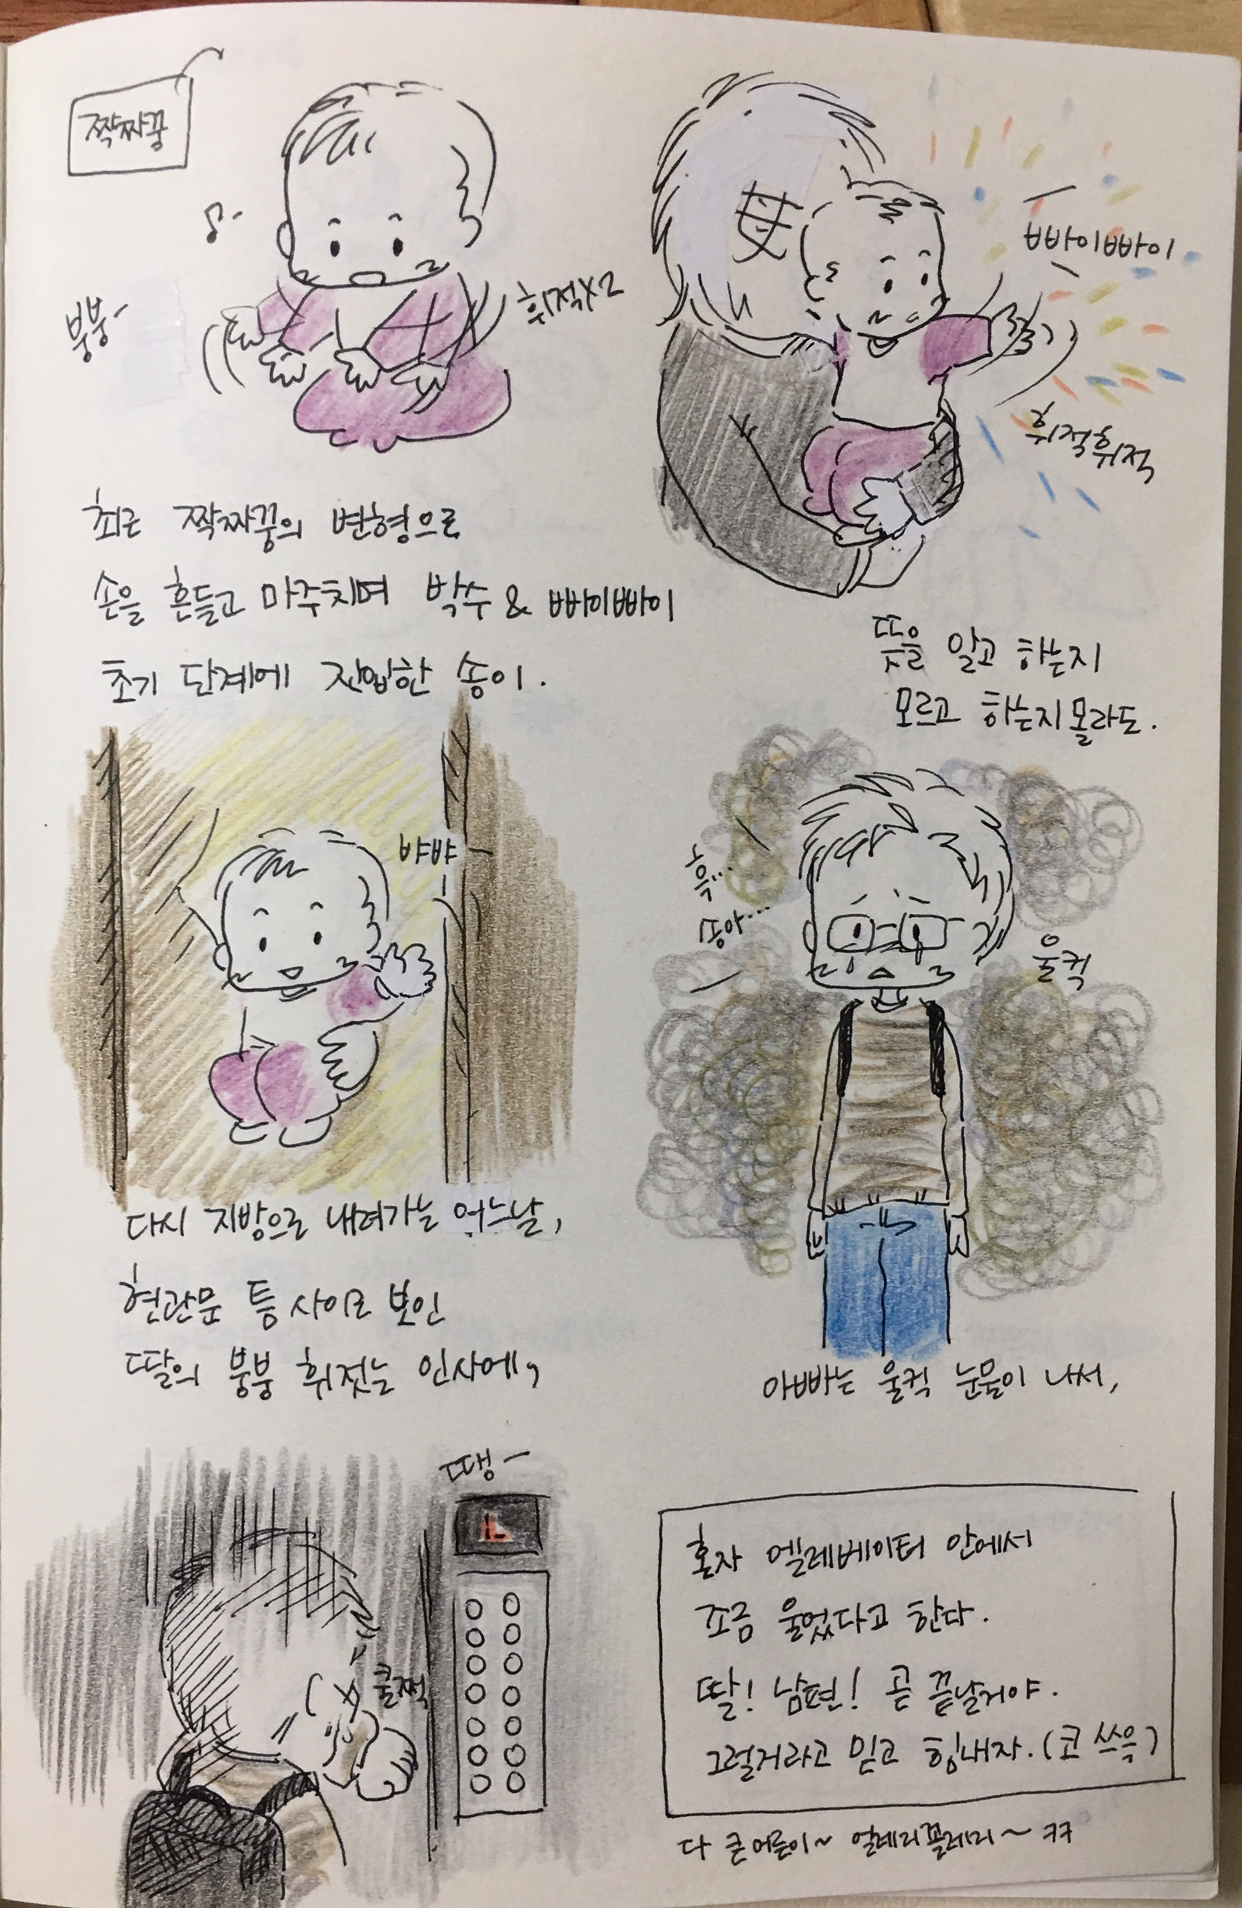 짝짜꿍
붕붕-
휘적X2
母
빠이빠이
휘적휘적
최근 짝짜꿍의 변형으로
손을 흔들고 마주치며 박수 & 빠이빠이
초기 단계에 진입한 송이.
뜻을 알고 하는지
모르고 하는지 몰라도.
뱌뱌
다시 지방으로 내려가는 어느날,
현관문 틈 사이로 보인
딸의 붕붕 휘젓는 인사에,
흑...
송아...
울컥
아빠는 울컥 눈물이 나서,
땡-
훌쩍
혼자 엘레베이터 안에서
조금 울었다고 한다.
딸! 남편! 곧 끝날거야.
그럴거라고 믿고 힘내자. (코 쓰윽)
다 큰 어른이~ 얼레리꼴레리~ ㅋㅋ